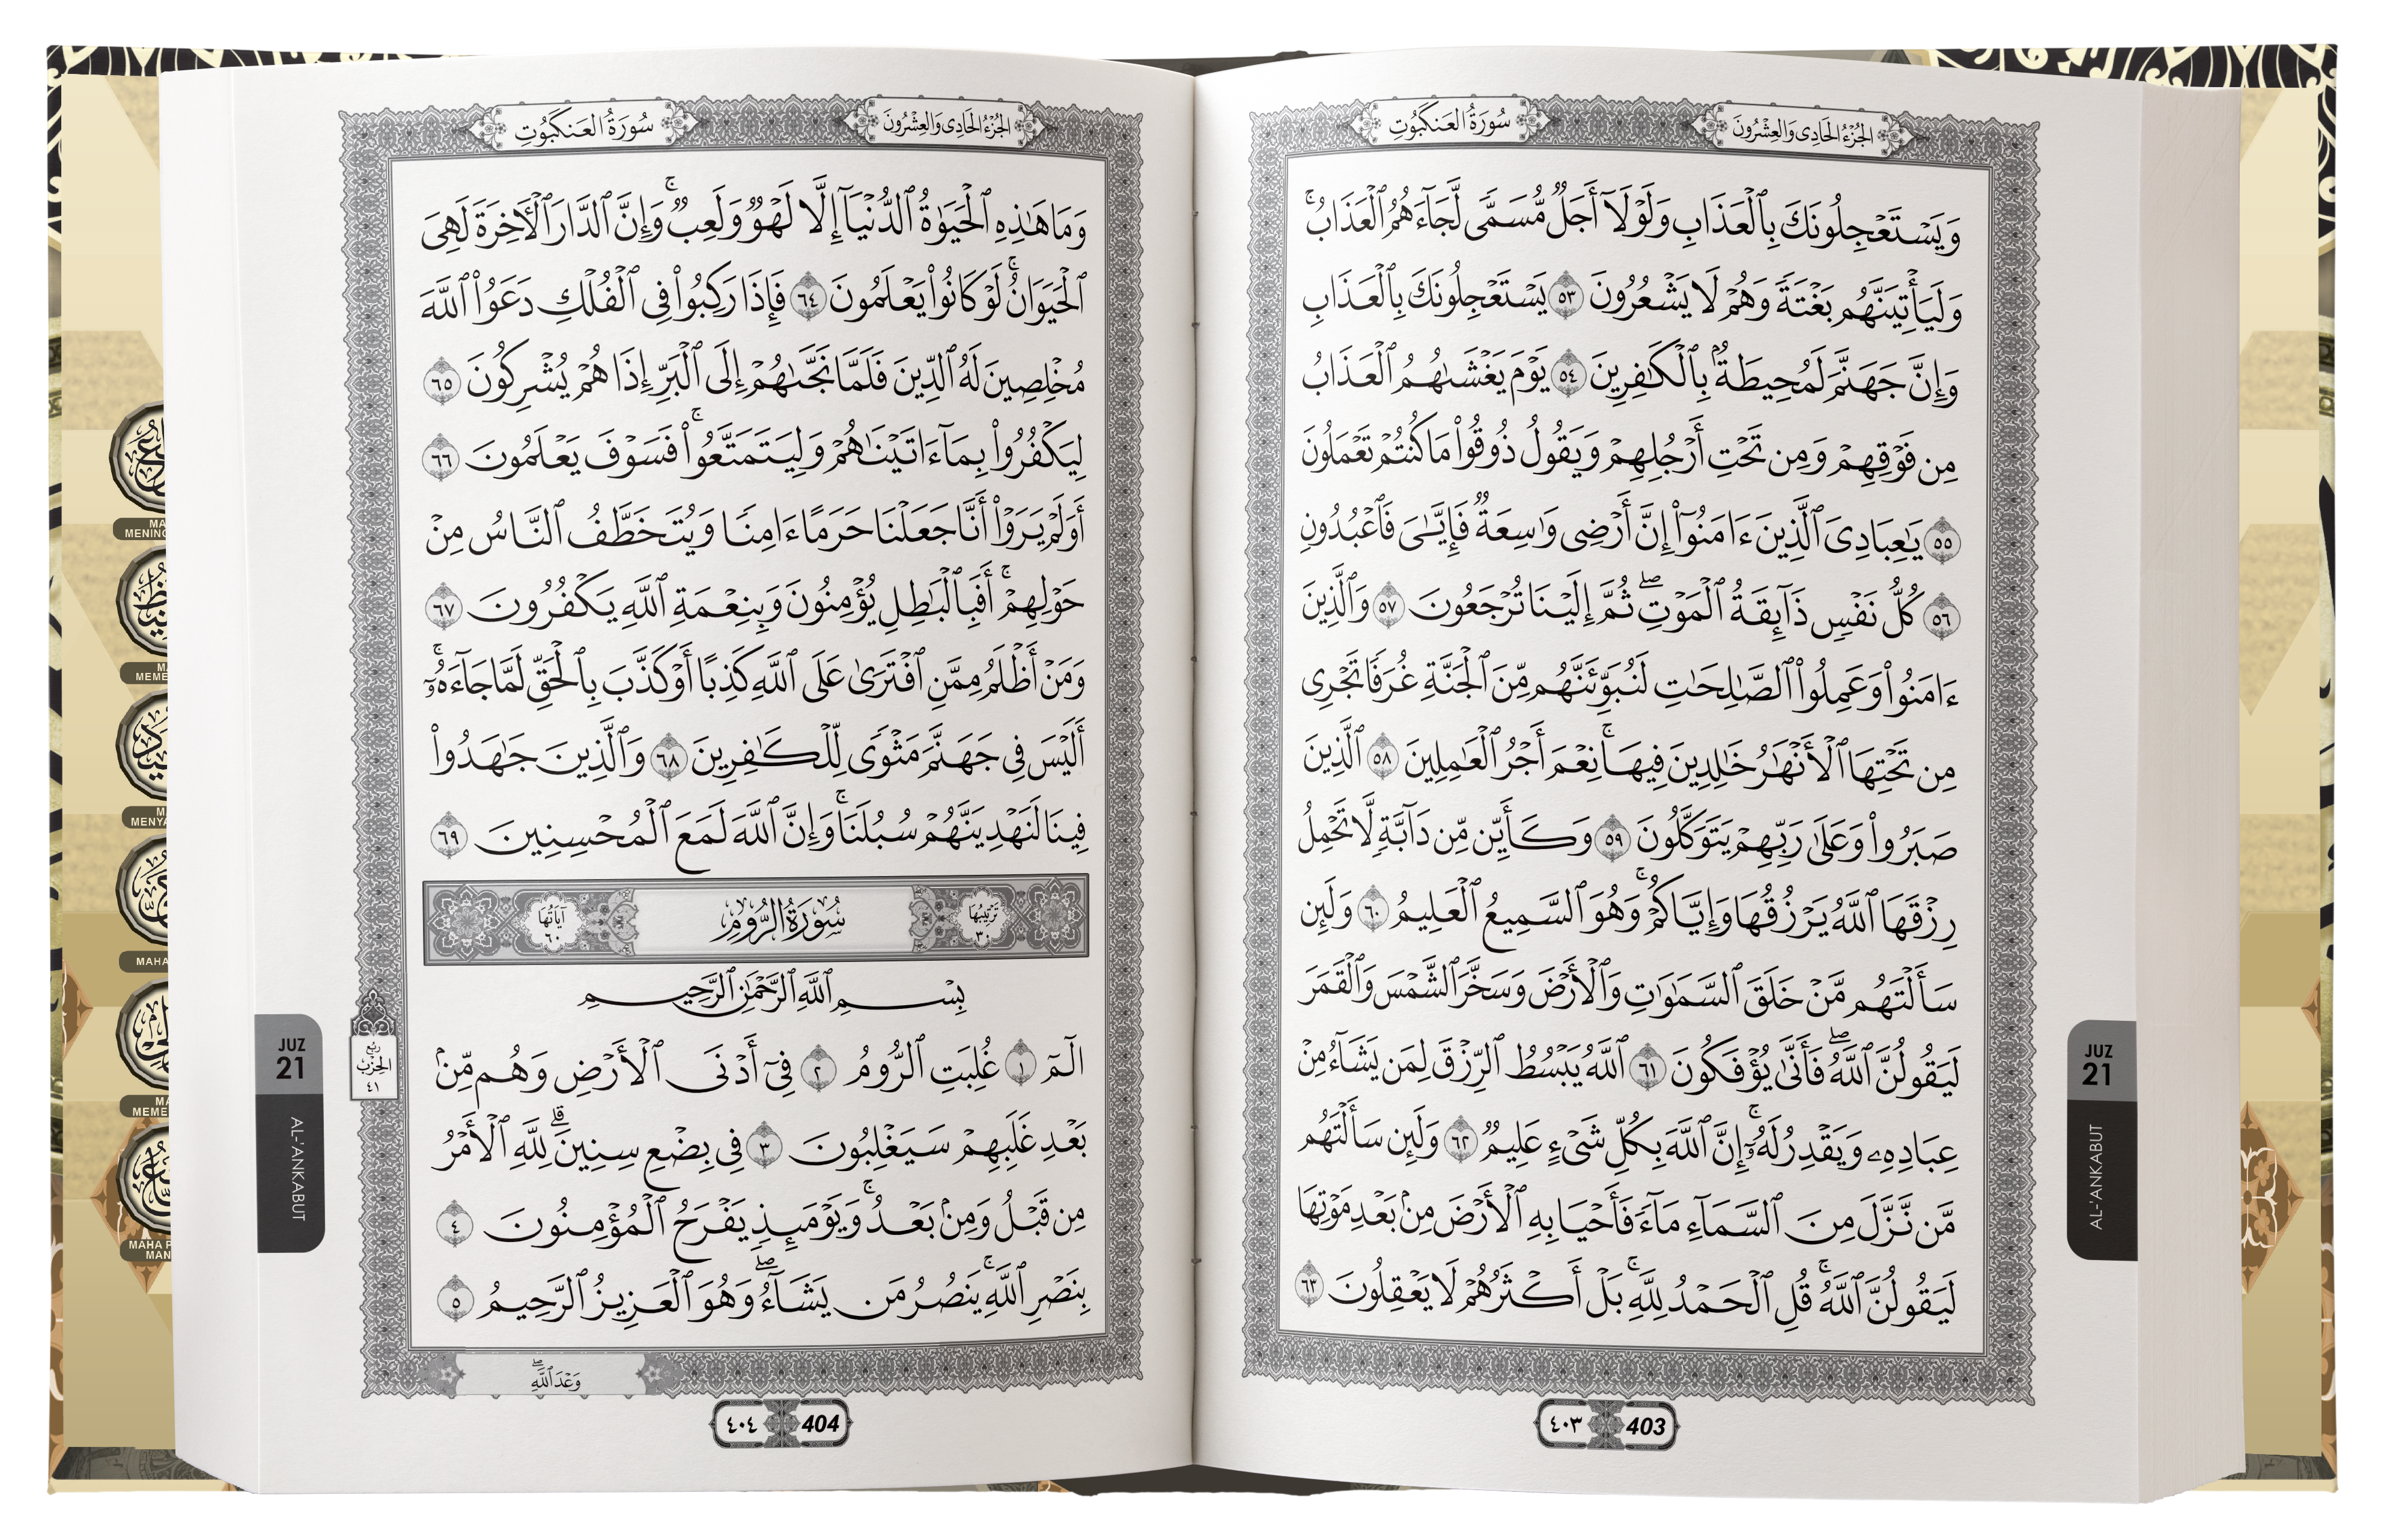 الجزء الحادي والعشرون
سورة العنكبوت
وَيَسْتَعْجِلُونَكَ بِٱلْعَذَابِ وَلَوْلَآ أَجَلٌ مُّسَمًّى لَّجَآءَهُمُ ٱلْعَذَابُۚ
وَلَيَأْتِيَنَّهُم بَغْتَةً وَهُمْ لَا يَشْعُرُونَ ٥٣ يَسْتَعْجِلُونَكَ بِٱلْعَذَابِ
وَإِنَّ جَهَنَّمَ لَمُحِيطَةٌۢ بِٱلْكَٰفِرِينَ ٥٤ يَوْمَ يَغْشَىٰهُمُ ٱلْعَذَابُ
مِن فَوْقِهِمْ وَمِن تَحْتِ أَرْجُلِهِمْ وَيَقُولُ ذُوقُوا۟ مَا كُنتُمْ تَعْمَلُونَ
٥٥ يَٰعِبَادِىَ ٱلَّذِينَ ءَامَنُوٓا۟ إِنَّ أَرْضِى وَٰسِعَةٌ فَإِيَّٰىَ فَٱعْبُدُونِ
٥٦ كُلُّ نَفْسٍ ذَآئِقَةُ ٱلْمَوْتِۖ ثُمَّ إِلَيْنَا تُرْجَعُونَ ٥٧ وَٱلَّذِينَ
ءَامَنُوا۟ وَعَمِلُوا۟ ٱلصَّٰلِحَٰتِ لَنُبَوِّئَنَّهُم مِّنَ ٱلْجَنَّةِ غُرَفًا تَجْرِى
مِن تَحْتِهَا ٱلْأَنْهَٰرُ خَٰلِدِينَ فِيهَاۚ نِعْمَ أَجْرُ ٱلْعَٰمِلِينَ ٥٨ ٱلَّذِينَ
صَبَرُوا۟ وَعَلَىٰ رَبِّهِمْ يَتَوَكَّلُونَ ٥٩ وَكَأَيِّن مِّن دَآبَّةٍ لَّا تَحْمِلُ
رِزْقَهَا ٱللَّهُ يَرْزُقُهَا وَإِيَّاكُمْۚ وَهُوَ ٱلسَّمِيعُ ٱلْعَلِيمُ ٦٠ وَلَئِن
سَأَلْتَهُم مَّنْ خَلَقَ ٱلسَّمَٰوَٰتِ وَٱلْأَرْضَ وَسَخَّرَ ٱلشَّمْسَ وَٱلْقَمَرَ
لَيَقُولُنَّ ٱللَّهُۖ فَأَنَّىٰ يُؤْفَكُونَ ٦١ ٱللَّهُ يَبْسُطُ ٱلرِّزْقَ لِمَن يَشَآءُ مِنْ
عِبَادِهِۦ وَيَقْدِرُ لَهُۥٓۚ إِنَّ ٱللَّهَ بِكُلِّ شَىْءٍ عَلِيمٌ ٦٢ وَلَئِن سَأَلْتَهُم
مَّن نَّزَّلَ مِنَ ٱلسَّمَآءِ مَآءً فَأَحْيَا بِهِ ٱلْأَرْضَ مِنۢ بَعْدِ مَوْتِهَا
لَيَقُولُنَّ ٱللَّهُۚ قُلِ ٱلْحَمْدُ لِلَّهِۚ بَلْ أَكْثَرُهُمْ لَا يَعْقِلُونَ ٦٣
٤٠٣ 403
JUZ
21
AL-'ANKABUT
الجزء الحادي والعشرون
سورة العنكبوت
وَمَا هَٰذِهِ ٱلْحَيَوٰةُ ٱلدُّنْيَآ إِلَّا لَهْوٌ وَلَعِبٌۚ وَإِنَّ ٱلدَّارَ ٱلْأَخِرَةَ لَهِىَ
ٱلْحَيَوَانُۚ لَوْ كَانُوا۟ يَعْلَمُونَ ٦٤ فَإِذَا رَكِبُوا۟ فِى ٱلْفُلْكِ دَعَوُا۟ ٱللَّهَ
مُخْلِصِينَ لَهُ ٱلدِّينَ فَلَمَّا نَجَّىٰهُمْ إِلَى ٱلْبَرِّ إِذَا هُمْ يُشْرِكُونَ ٦٥
لِيَكْفُرُوا۟ بِمَآ ءَاتَيْنَٰهُمْ وَلِيَتَمَتَّعُوا۟ۚ فَسَوْفَ يَعْلَمُونَ ٦٦
أَوَلَمْ يَرَوْا۟ أَنَّا جَعَلْنَا حَرَمًا ءَامِنًا وَيُتَخَطَّفُ ٱلنَّاسُ مِنْ
حَوْلِهِمْۚ أَفَبِٱلْبَٰطِلِ يُؤْمِنُونَ وَبِنِعْمَةِ ٱللَّهِ يَكْفُرُونَ ٦٧
وَمَنْ أَظْلَمُ مِمَّنِ ٱفْتَرَىٰ عَلَى ٱللَّهِ كَذِبًا أَوْ كَذَّبَ بِٱلْحَقِّ لَمَّا جَآءَهُۥٓۚ
أَلَيْسَ فِى جَهَنَّمَ مَثْوًى لِّلْكَٰفِرِينَ ٦٨ وَٱلَّذِينَ جَٰهَدُوا۟
فِينَا لَنَهْدِيَنَّهُمْ سُبُلَنَاۚ وَإِنَّ ٱللَّهَ لَمَعَ ٱلْمُحْسِنِينَ ٦٩
ترتيبها ٣٠
سورة الروم
آياتها ٦٠
بِسْمِ ٱللَّهِ ٱلرَّحْمَٰنِ ٱلرَّحِيمِ
الٓمٓ ١ غُلِبَتِ ٱلرُّومُ ٢ فِىٓ أَدْنَى ٱلْأَرْضِ وَهُم مِّنۢ
بَعْدِ غَلَبِهِمْ سَيَغْلِبُونَ ٣ فِى بِضْعِ سِنِينَۗ لِلَّهِ ٱلْأَمْرُ
مِن قَبْلُ وَمِنۢ بَعْدُۚ وَيَوْمَئِذٍ يَفْرَحُ ٱلْمُؤْمِنُونَ ٤
بِنَصْرِ ٱللَّهِۚ يَنصُرُ مَن يَشَآءُۖ وَهُوَ ٱلْعَزِيزُ ٱلرَّحِيمُ ٥
وَعْدَ ٱللَّهِۖ
ربع
الحزب
٤١
٤٠٤ 404
JUZ
21
AL-'ANKABUT